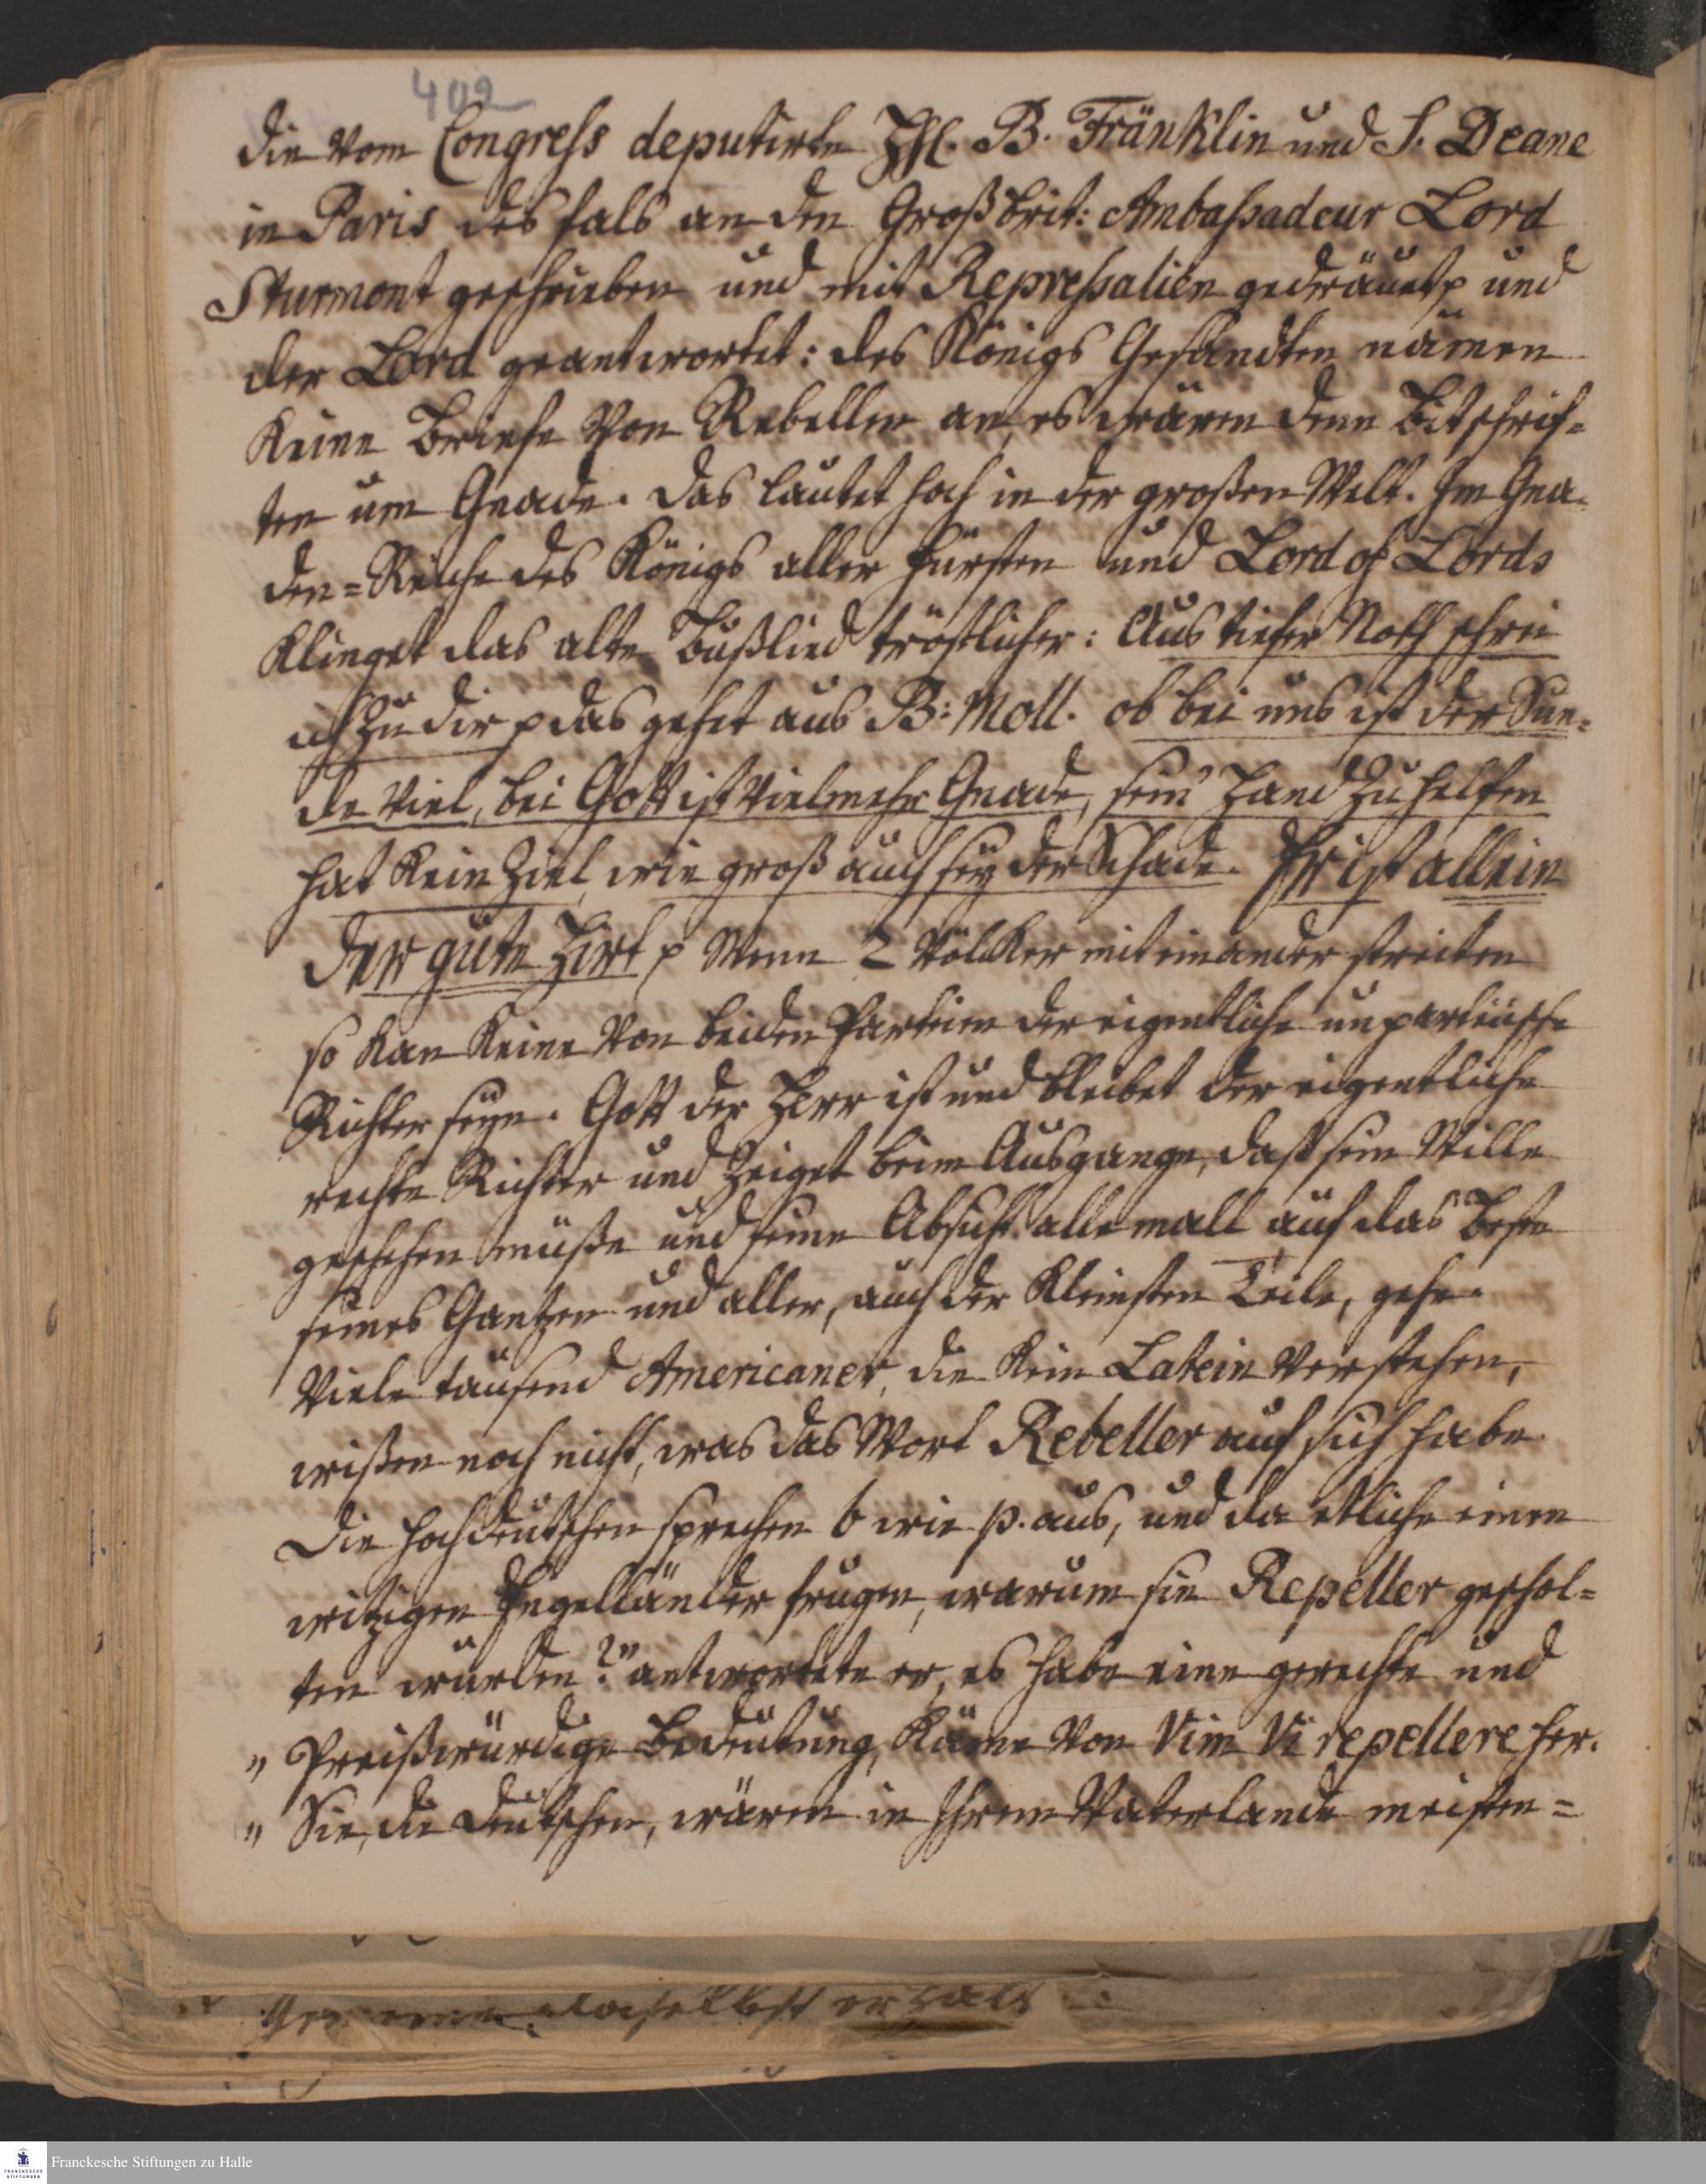 402
die vom Congress deputirte HhE. B. Fränklin und S. Deane
in Paris desfals an den Großbrit: Ambassadeur Lord
Sturmont geschrieben und mit Repressalien gedräuet p und
der Lord geantwortet: des Königs Gesandten nämen
Keine Briefe von Rebeller an, es wären denn Bitschrif=
ten um Gnade. das lautet hoch in der großen Welt. Im Gna-
den=Reiche des Königs aller Fürsten und Lord of Lords
Klinget das alte Bußlied tröstlicher: Aus tiefer Noth schrei
ich zu dir p das gehet aus B: Moll. ob bei uns ist der Sün=
de viel, bei Gott ist vielmehr Gnade, sein' Hand zu helfen
hat Kein Ziel, wie groß auch sey der Schade. Er ist allein
der gute Hirt p Wenn 2 Völcker mit einander streiten
so kan Keine von beiden Parteien der eigentliche unparteiische
Richter seyn. Gott der Herr ist und bleibet der eigentliche
rechte Richter und zeiget beim Ausgange, daß sein Wille
geschehen müße und seine Absicht allemall auf das Beste
seines Gantzen und aller, auch der Kleinsten Teile, gehe.
Viele tausend Americaner, die Kein Latein verstehen,
wißen noch nicht, was das Wort Rebeller auf sich habe.
Die Hochdeutschen sprechen b wie p. aus, und da etliche einen
witzigen Engelländer frugen, warum sie Repeller geschol=
ten würden? " antwortete er, es habe eine gerechte und
" Preißwürdige Bedeutung, Käme von Vim Vi repellere her.
" Sie, die Deutschen, wären in Ihrem Vaterlande meisten=
daselbst erhalt
Franckesche Stiftungen zu Halle
FRANCKESCHE
STIFTUNGEN